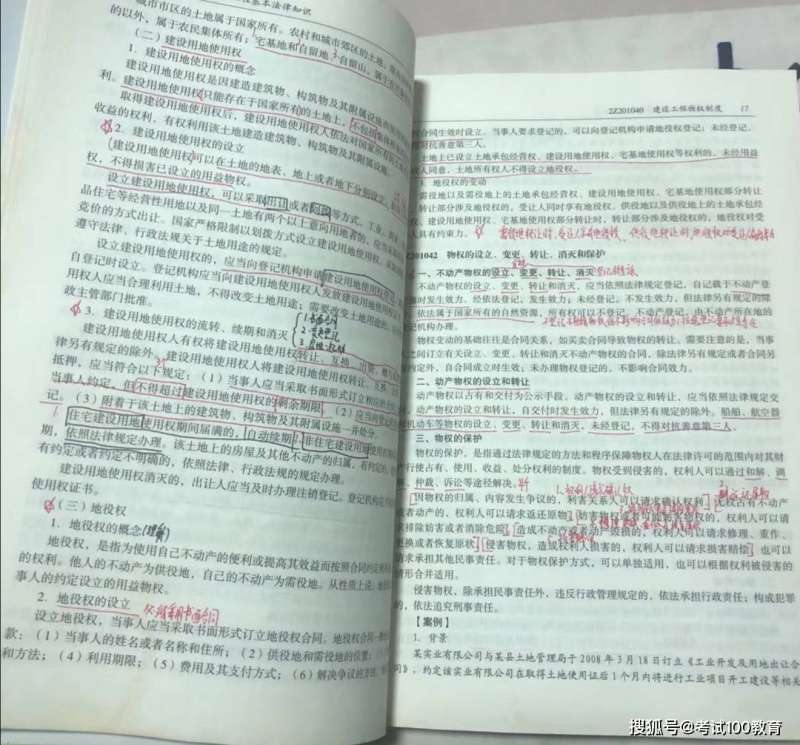 基本法律知识
城市市区的土地属于国家所有。农村和城市郊区的土地,
的以外,属于农民集体所有;宅基地和自留地、自留山,
(二)建设用地使用权
1. 建设用地使用权的概念
建设用地使用权是因建造建筑物、构筑物及其附属设施
利。建设用地使用权只能存在于国家所有的土地上,不包括集体
取得建设用地使用权后,建设用地使用权人依法对国家所有的土地
收益的权利,有权利用该土地建造建筑物、构筑物及其附属设施。
2. 建设用地使用权的设立
建设用地使用权可以在土地的地表、地上或者地下分别设立。
权,不得损害已设立的用益物权。
设立建设用地使用权,可以采取出让或者划拨等方式。工业、
品住宅等经营性用地以及同一土地有两个以上意向用地者的,应当
竞价的方式出让。国家严格限制以划拨方式设立建设用地使用权。
遵守法律、行政法规关于土地用途的规定。
设立建设用地使用权的,应当向登记机构申请建设用地使用权登记。
自登记时设立。登记机构应当向建设用地使用权人发放建设用地使用权
用权人应当合理利用土地,不得改变土地用途;需要改变土地用途的,
政主管部门批准。
3. 建设用地使用权的流转、续期和消灭
建设用地使用权人有权将建设用地使用权转让、互换、出资、赠与
律另有规定的除外。建设用地使用权人将建设用地使用权转让、互换、
抵押,应当符合以下规定:(1)当事人应当采取书面形式订立相应的合同。
当事人约定,但不得超过建设用地使用权的剩余期限。(2)应当向登记
记。(3)附着于该土地上的建筑物、构筑物及其附属设施一并处分。
住宅建设用地使用权期间届满的,自动续期。非住宅建设用地使用权
期,依照法律规定办理。该土地上的房屋及其他不动产的归属,有约定的,
有约定或者约定不明确的,依照法律、行政法规的规定办理。
建设用地使用权消灭的,出让人应当及时办理注销登记。登记机构应当
使用权证书。
(三)地役权
1. 地役权的概念
地役权,是指为使用自己不动产的便利或提高其效益而按照合同约定利用
的权利。他人的不动产为供役地,自己的不动产为需役地。从性质上说,
事人的约定设立的用益物权。
2. 地役权的设立
设立地役权,当事人应当采取书面形式订立地役权合同。地役权合同一般
款:(1)当事人的姓名或者名称和住所;(2)供役地和需役地的位置;
和方法;(4)利用期限;(5)费用及其支付方式;(6)解决争议的方法。
2Z201040 建设工程物权制度 17
合同生效时设立。当事人要求登记的,可以向登记机构申请地役权登记;未经登记,
对抗善意第三人。
土地上已设立土地承包经营权、建设用地使用权、宅基地使用权等权利的,未经用益
权人同意,土地所有权人不得设立地役权。
3. 地役权的变动
需役地以及需役地上的土地承包经营权、建设用地使用权、宅基地使用权部分转让
转让部分涉及地役权的,受让人同时享有地役权。供役地以及供役地上的土地承包经
权、建设用地使用权、宅基地使用权部分转让时,转让部分涉及地役权的,地役权对受
人具有约束力。
201042 物权的设立、变更、转让、消灭和保护
一、不动产物权的设立、变更、转让、消灭
不动产物权的设立、变更、转让和消灭,应当依照法律规定登记,自记载于不动产登
簿时发生效力。经依法登记,发生效力;未经登记,不发生效力,但法律另有规定的除
依法属于国家所有的自然资源,所有权可以不登记。不动产登记,由不动产所在地的
记机构办理。
物权变动的基础往往是合同关系,如买卖合同导致物权的转让。需要注意的是,当事
之间订立有关设立、变更、转让和消灭不动产物权的合同,除法律另有规定或者合同另
约定外,自合同成立时生效;未办理物权登记的,不影响合同效力。
二、动产物权的设立和转让
动产物权以占有和交付为公示手段。动产物权的设立和转让,应当依照法律规定交
动产物权的设立和转让,自交付时发生效力,但法律另有规定的除外。船舶、航空器
机动车等物权的设立、变更、转让和消灭,未经登记,不得对抗善意第三人。
三、物权的保护
物权的保护,是指通过法律规定的方法和程序保障物权人在法律许可的范围内对其财
行使占有、使用、收益、处分权利的制度。物权受到侵害的,权利人可以通过和解、调
、仲裁、诉讼等途径解决。
因物权的归属、内容发生争议的,利害关系人可以请求确认权利。无权占有不动产
或者动产的,权利人可以请求返还原物。妨害物权或者可能妨害物权的,权利人可以请
求排除妨害或者消除危险。造成不动产或者动产毁损的,权利人可以请求修理、重作、
更换或者恢复原状。侵害物权,造成权利人损害的,权利人可以请求损害赔偿,也可以
请求承担其他民事责任。对于物权保护方式,可以单独适用,也可以根据权利被侵害的
情形合并适用。
侵害物权,除承担民事责任外,违反行政管理规定的,依法承担行政责任;构成犯罪
的,依法追究刑事责任。
【案例】
1. 背景
某实业有限公司与某县土地管理局于2008年3月18日订立《工业开发及用地出让合
同》,约定该实业有限公司在取得土地使用证后1个月内将进行工业项目开工建设等相关
搜狐号@考试100教育